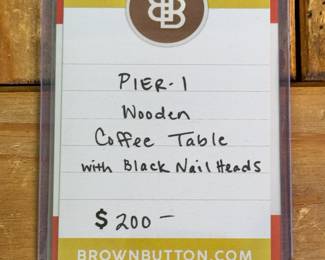 PIER-1
Wooden
Coffee Table
with Black Nail Heads
$200-
BROWNBUTTON.COM